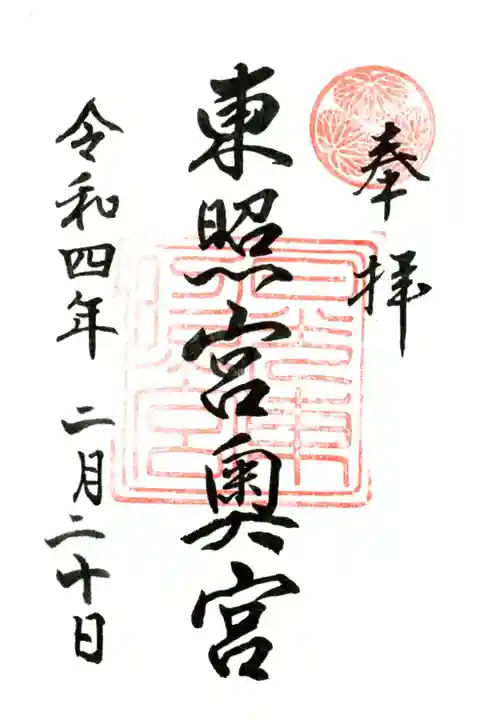 奉拝
東照宮奥宮
令和四年 二月二十日